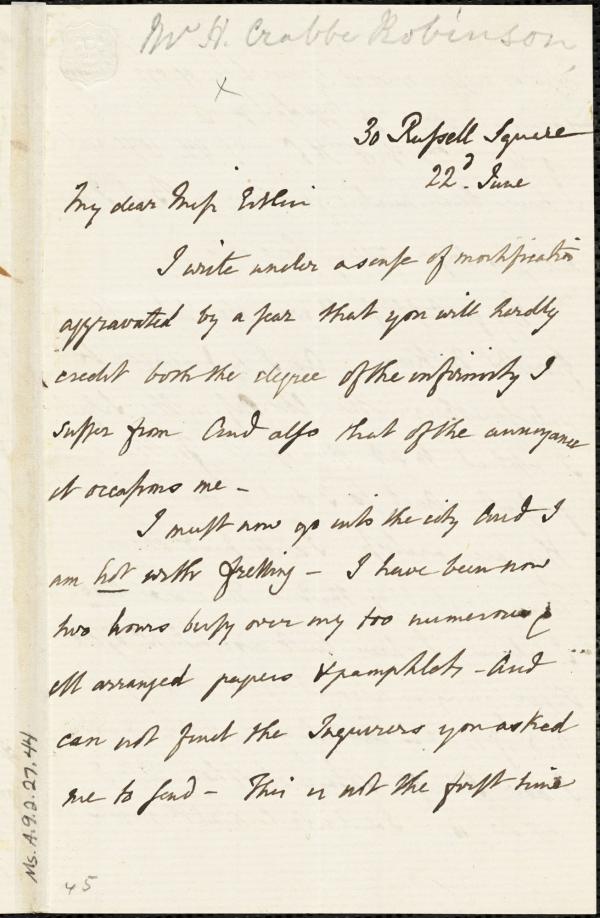 Mr H. Crabbe Robinson
x
30 Russell Square
22d June
My dear Miss Estlin
I write under a sense of mortification
aggravated by a fear that you will hardly
credit both the degree of the infirmity I
suffer from And also that of the annoyance
it occasions me –
I must now go into the city And I
am hot with fretting – I have been now
two hours busy over my too numerous &
ill arranged papers & pamphlets – And
can not find the Inquirers you asked
me to send – This is not the first time
Ms. A.9.2.27.44
45